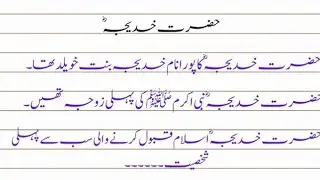 حضرت خدیجہؓ
حضرت خدیجہؓ کا پورا نام خدیجہ بنت خویلد تھا۔
حضرت خدیجہؓ نبی اکرم ﷺ کی پہلی زوجہ تھیں۔
حضرت خدیجہؓ اسلام قبول کرنے والی سب سے پہلی
شخصیت ------